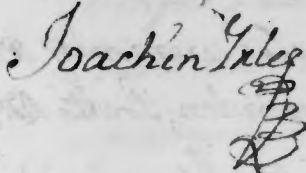 Joachin Ynleg